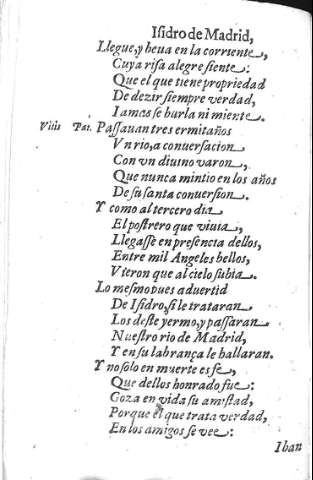 Isidro de Madrid,
Llegue, y beua en la corriente,
Cuya risa alegre siente:
Que el que tiene propriedad
De dezir siempre verdad,
Iamas se burla ni miente.
Vitis Pat. Passauan tres ermitaños
Vn rio, a conuersacion
Con vn diuino varon,
Que nunca mintio en los años
De su santa conuersion.
Y como al tercero dia
El postrero que viuia,
Llegasse en presencia dellos,
Entre mil Angeles bellos,
Vieron que al cielo subia.
Lo mesmo pues aduertid
De Isidro, si le trataran
Los deste yermo, y passaran
Nuestro rio de Madrid,
Y en su labrança le hallaran.
Y no solo en muerte es fe,
Que dellos honrado fue:
Goza en vida su amistad,
Porque el que trata verdad,
En los amigos se vee:
Iban